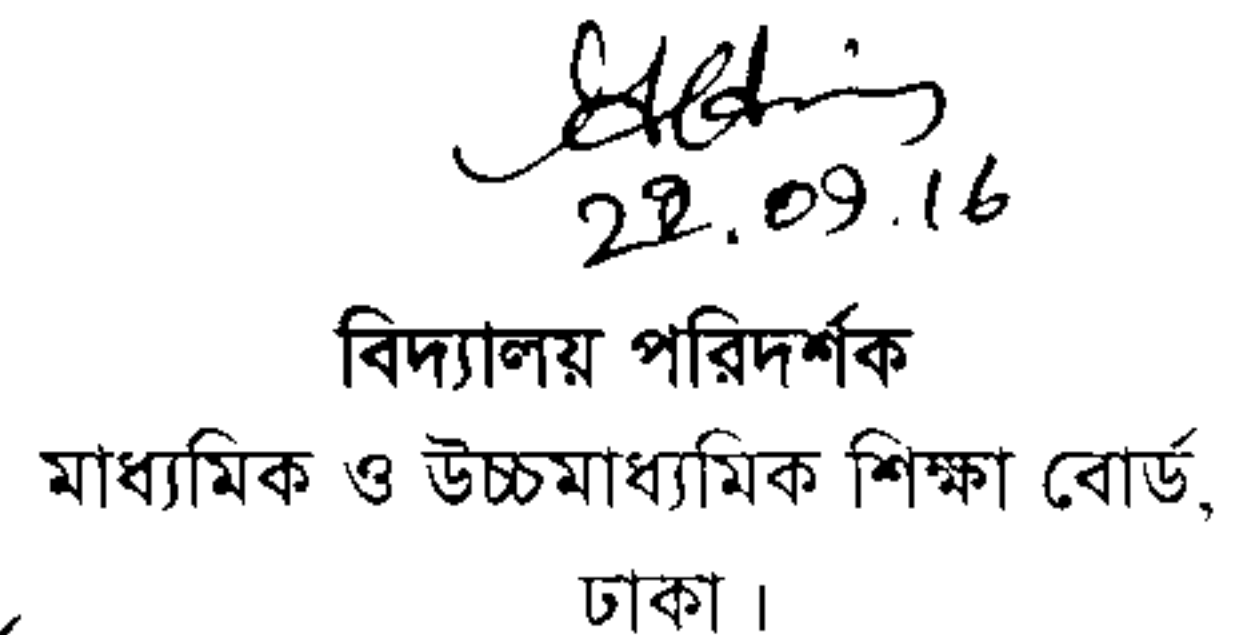 22.09.16
বিদ্যালয় পরিদর্শক
মাধ্যমিক ও উচ্চমাধ্যমিক শিক্ষা বোর্ড,
ঢাকা।